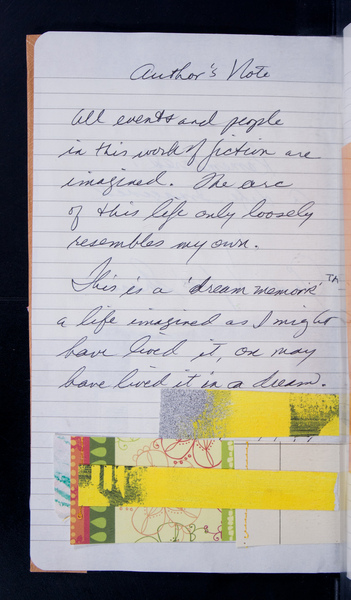 Author's Note
All events and people
in this work of fiction are
imagined. The arc
of this life only loosely
resembles my own.
This is a 'dream memoir' TM
a life imagined as I might
have lived it, or may
have lived it in a dream.